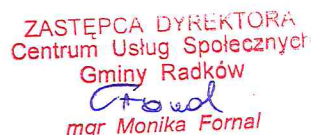 ZASTĘPCA DYREKTORA
Centrum Usług Społecznych
Gminy Radków
mgr Monika Fornal